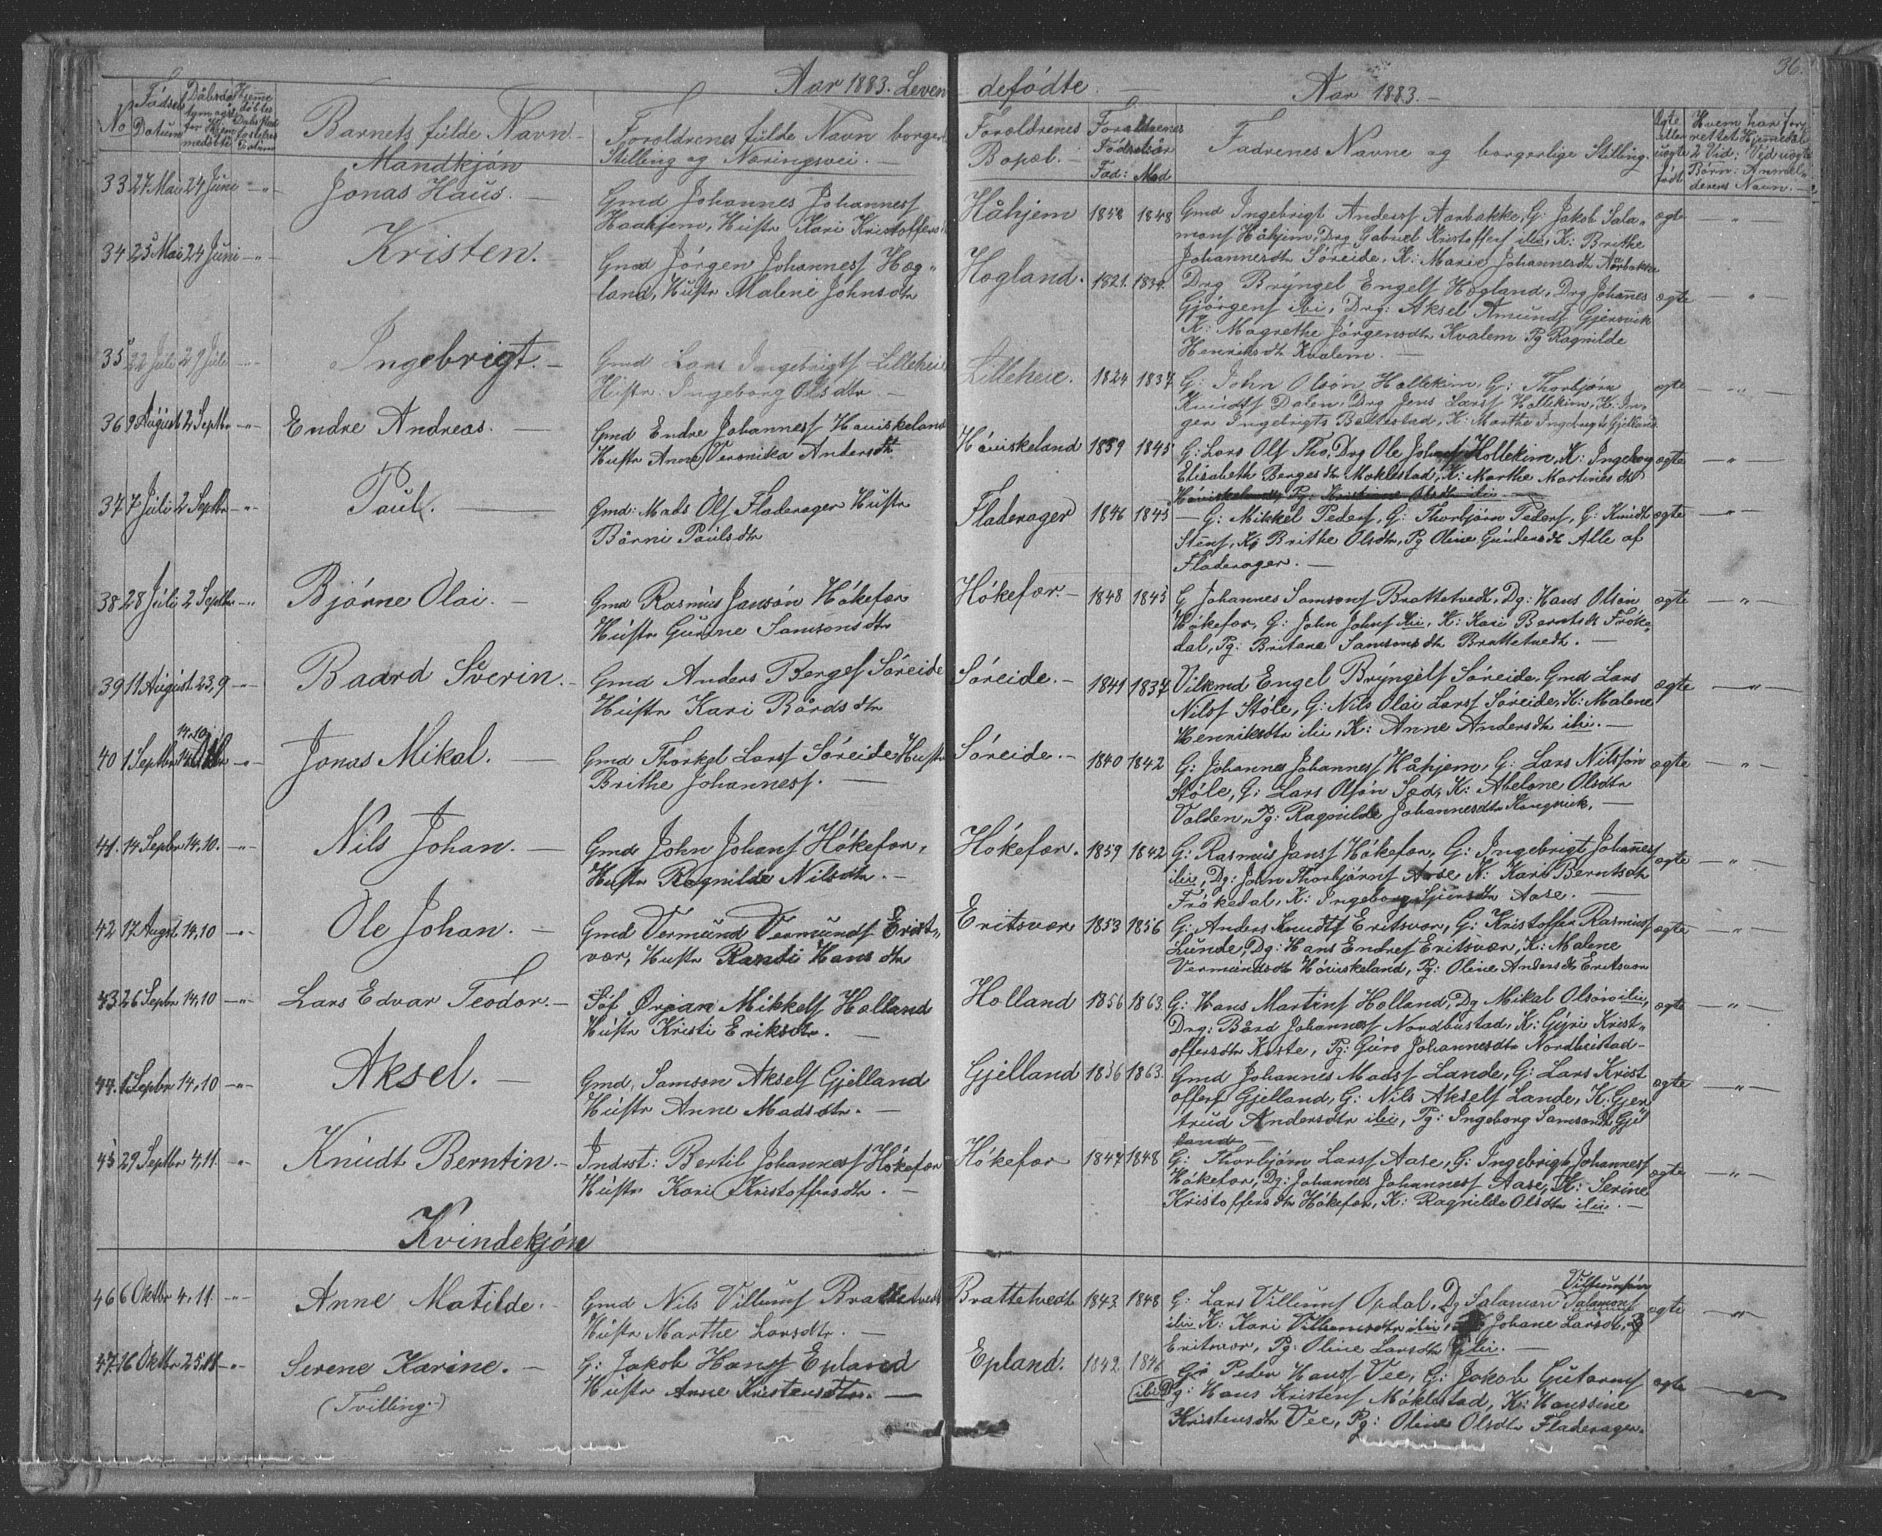 36.
Aar 1883. Levendefødte. Aar 1883.
No
Fødsels Datum
Barnets fulde Navn
Forældrenes fulde Navn borgerl. Stilling og Næringsvei.
Forældrenes Bopæl.
Forældrenes Fødselsår Fad: Mod
Fadrenes Navne og borgerlige Stilling.
Ægte eller uægte født
Mandkjøn
33 27 Mai 24 Juni -"- Jonas Haus. Gmd Johannes Johannesf
Haahjem, Hustr Kari Kristoffers
Håhjem 1858 1848 Gmd Ingebrigt Andersf Aarbakke, G: Jakob Sala-
monf Håhjem, Drg Gabriel Kristoffersf ibi, K: Brithe
Johannesdtr Søreide, K: Marie Johannesdtr Aarbakke
ægte - " -
34 25 Mai 24 Juni -"- Kristen. Gmd Jørgen Johannesf Høg-
land, Hustr Malene Johnsdtr
Hogland. 1821. 1837. Drg Brýngel Engelf Hogland, Drg Johannes
Gjørgensf ibi, Drg: Aksel Amundf Gjersvik
K: Magrethe Jørgensdtr Kvalem Pg Ragnilde
Henriksdtr Kvalem. -
ægte - " -
35 22 Juli 29 Juli -"- Ingebrigt. Gmd Lars Ingebrigtf Lilleheie
Hustr. Ingeborg Olsdtr -
Lilleheie. 1824 1837 G: John Olsøn Hollekim, G: Thorbjørn
Knudtf Dalen, Drg Jens Larsf Hollekim, K: In-
ger Ingebrigts Battestad, K: Marthe Ingebrigts Gjelland
ægte - " -
36 9 August 2 Septbr -"- Endre Andreas. Gmd Endre Johannesf Høviskeland
Hustr Anne Veronika Andersdtr
Høviskeland 1859 1845 G: Lars Olf Tho, Drg Ole Johnsf Hollekim, K: Ingeborg
Elisabeth Bergesdtr Møklestad, K: Marthe Martinesdtr
Høviskeland, Pg: Kristine Olsdtr ibi -
ægte - " -
37 7 Juli 2 Septbr -"- Paul. Gmd: Mads Olf Fladerager Hustr
Bårni Påulsdtr
Fladerager 1846 1845 G: Mikkel Pedersf, G: Thorbjørn Pedersf, G: Knudt
Stensf, K: Brithe Olsdtr, Pg Oline Gundersdtr Alle af
Fladerager. -
ægte - " -
38 28 Juli 2 Septbr -"- Bjørne Olai. Gmd Rasmus Jansøn Høkefor
Hustr Gurine Samsonsdtr
Høkefor. 1848 1845 G Johannes Samsonf Brattetvedt, Dg: Hans Olsøn
Høkefor, G: John Johnf ibi, K: Kari Berntsdtr Frøke-
dal, Pg: Britane Samsonsdtr Brattetvedt. -
ægte - " -
39 11 August 23,9 -"- Baard Sverin. Gmd Anders Bergesf Søreide
Hustr Kari Bårdsdtr
Søreide. 1841 1837. Vilkmd Engel Brýngelf Søreide, Gmd Lars
Nilsf Støle, G: Nils Olai Larsf Søreide, K: Malene
Henriksdtr ibi, K: Anne Andersdtr ibi. -
ægte - " -
40 1 Septbr 14.10 -"- Jonas Mikal. Gmd Thorkel Larsf Søreide Hustr
Brithe Johannesf.
Søreide. 1840 1842 G: Johannes Johannesf Håhjem, G: Lars Nilssøn
Støle, G: Lars Olsøn Sæd, K: Abelone Olsdtr
Valden, Pg: Ragnilde Johannesdtr Kongsvik.
ægte - " -
41. 14 Septbr 14.10. -"- Nils Johan. Gmd John Johanf Høkefor,
Hustr Ragnilde Nilsdtr. -
Høkefor. 1859 1842 G: Rasmus Jansf Høkefor, G: Ingebrigt Johannesf
ibi, Dg: John Thorbjørnf Aase, K: Kari Berntsdtr
Frøkedal, K: Ingeborg Sjursdtr Aase.
ægte - " -
42 17 Augst. 14,10 -"- Ole Johan. Gmd Vermund Vermundf Erits-
vær, Hustr Randi Hansdtr
Eritsvær 1853 1856 G: Anders Knudtf Eritsvær, G: Kristoffer Rasmusf
Lunde, Dg: Hans Endref Eritsvær, K: Malene
Vermundsdtr Høviskeland, Pg: Oline Andersdtr Eritsvær
ægte - " -
43 26 Septbr 14,10 -"- Lars Edvar Teodor. Søf Ørjan Mikkelf Holland
Hustr Kristi Eriksdtr.
Holland 1856 1863. G: Hans Martinf Holland, Dg Mikal Olsøn ibi,
Drg: Bård Johannesf Nordbustad, K: Guri Krist-
offersdtr Koste, Pg: Guro Johannesdtr Nordbustad-
ægte - " -
44. 1 Septbr 14,10 -"- Aksel. Gmd, Samson Akself Gjelland
Hustr Anne Madsdtr. -
Gjelland 1856 1863. Gmd Johannes Madsf Lande, G: Lars Krist
offersf Gjelland, G: Nils Akself Lande, K: Gjer
trud Andersdtr ibi, Pg: Ingeborg Samsonsdtr Gjel
land -
ægte - " -
45 29 Septbr 4,11 -"- Knudt Berntin. Indrst: Bertil Johannesf Høkefor
Hustr Kari Kristoffersdtr. -
Høkefor 1847 1848 G: Thorbjørn Larsf Aase, G: Ingebrigt Johannesf
Høkefor, Dg: Johannes Johannesf Aase, K: Serine
Kristoffersdtr Høkefor, K: Ragnilde Olsdtr ibi. -
ægte - " -
Kvindekjøn
46 6 Oktbr 4.11 -"- Anne Matilde. Gmd Nils Villumf Brattetvedt
Hustr Marthe Larsdtr. -
Brattetvedt 1843. 1848 G: Lars Villumf Opdal, Dg Salamon Salamonf
ibi K: Kari Villumsdtr ibi, Johane Larsdtr
Eritsvær, Pg: Oline Larsdtr ibi. -
ægte - " -
47 16 Oktbr 25,11 -"- Serene Karine.
(Tvilling.)
G: Jakob Hansf Epland
Hustr Anne Kristensdtr.
Epland. 1842. 1846 G: Peder Hansf Vee, G: Jakob Gutormf
ibi Dg: Hans Kristenf Møklestad, K: Hanssine
Kristensdtr Vee, Pg: Oline Olsdtr Fladerager.
ægte